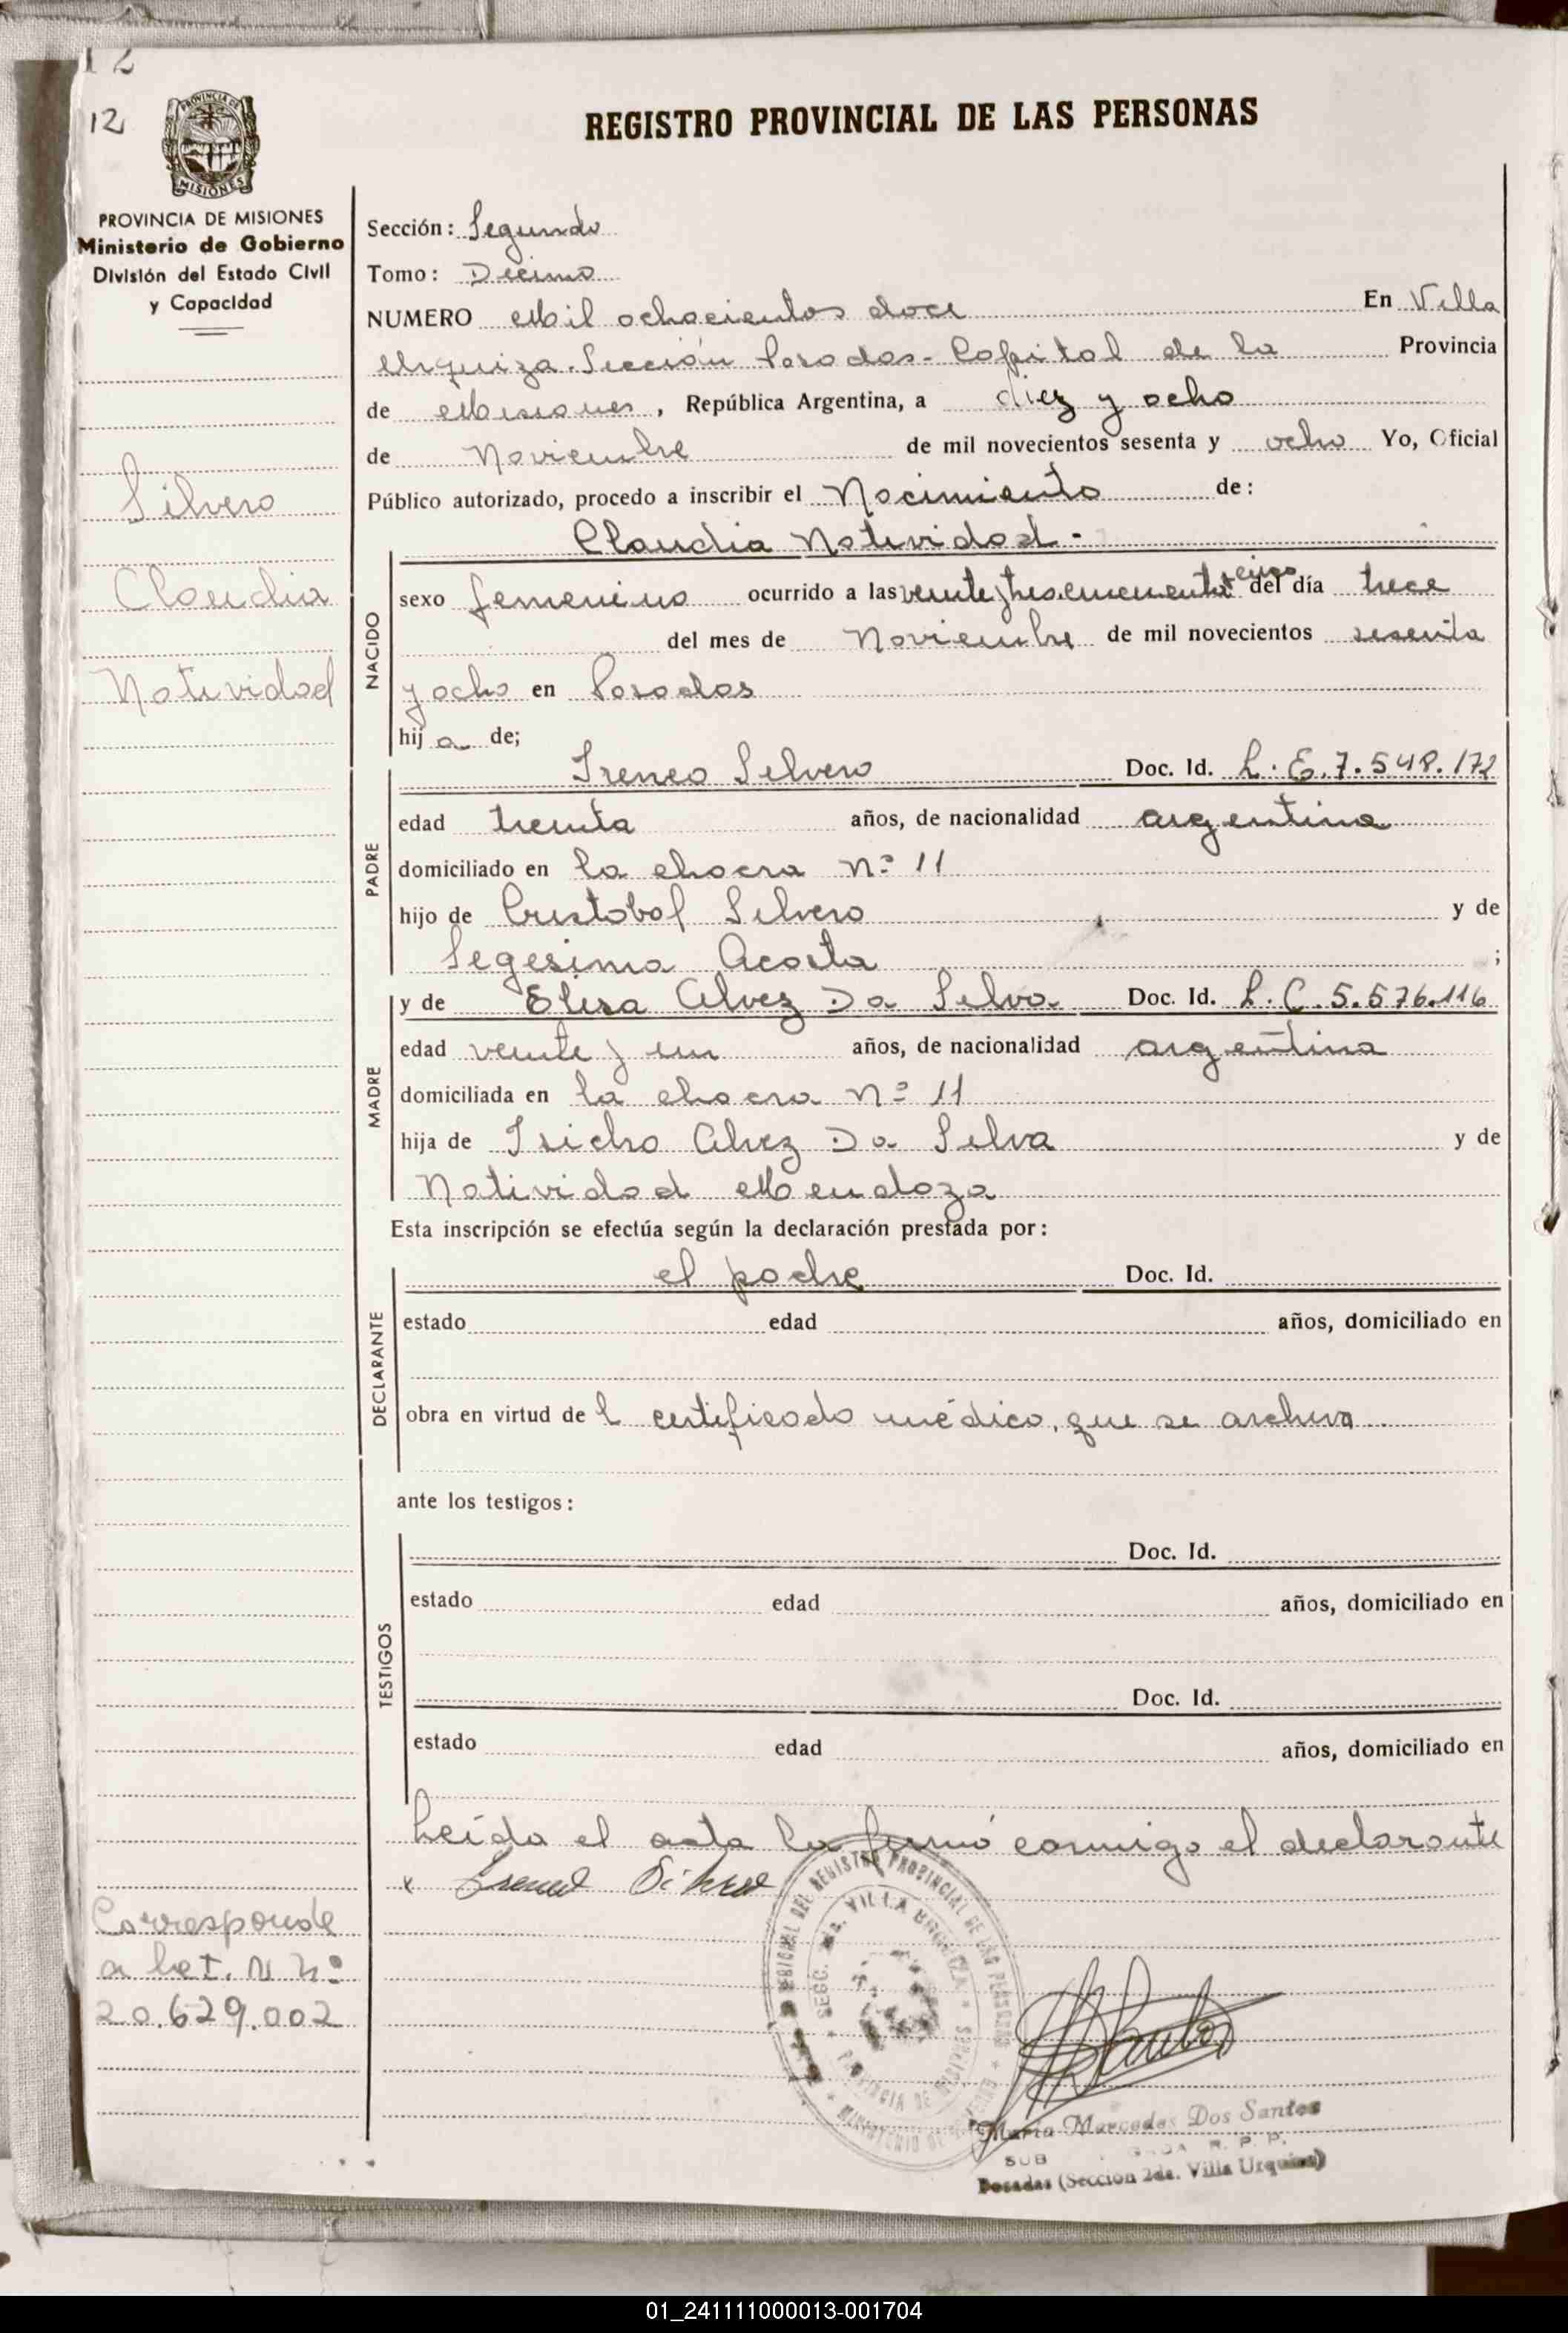 12
12
PROVINCIA DE
MISIONES
REGISTRO PROVINCIAL DE LAS PERSONAS
PROVINCIA DE MISIONES
Ministerio de Gobierno
División del Estado Civil
y Capacidad
Silvero
Claudia
Natividad
Corresponde
a Lbet. N nº
20.629.002
Sección: Segunda
Tomo: Décimo
NUMERO Mil ochocientos doce En Villa
Urquiza. Sección Posadas - Capital de la Provincia
de Misiones, República Argentina, a diez y ocho
de Noviembre de mil novecientos sesenta y ocho Yo, Oficial
Público autorizado, procedo a inscribir el Nacimiento de:
Claudia Natividad -
NACIDO
sexo femenino ocurrido a las veinte y tres cincuenta y cinco del día trece
del mes de Noviembre de mil novecientos sesenta
y ocho en Posadas
hij a de;
PADRE
Ireneo Silvero Doc. Id. L. E. 7.548.172
edad treinta años, de nacionalidad argentina
domiciliado en la chacra Nº 11
hijo de Cristobal Silvero y de
Segesima Acosta ;
MADRE
y de Elisa Alvez Da Silva Doc. Id. L. C. 5.576.116
edad veinte y un años, de nacionalidad argentina
domiciliada en la chacra Nº 11
hija de Isidro Alvez Da Silva y de
Natividad Mendoza
Esta inscripción se efectúa según la declaración prestada por:
DECLARANTE
el padre Doc. Id.
estado edad años, domiciliado en
obra en virtud de l certificado médico, que se archiva
ante los testigos:
TESTIGOS
Doc. Id.
estado edad años, domiciliado en
Doc. Id.
estado edad años, domiciliado en
Leída el acta la firmó conmigo el declarante
x Ireneo Silvero
REGISTRO PROVINCIAL DE LAS PERSONAS
SECC. 2da. VILLA URQUIZA
PROVINCIA DE MISIONES
MINISTERIO DE GOBIERNO
María Mercedes Dos Santos
SUB R. P. P.
Posadas (Sección 2da. Villa Urquiza)
01_241111000013-001704